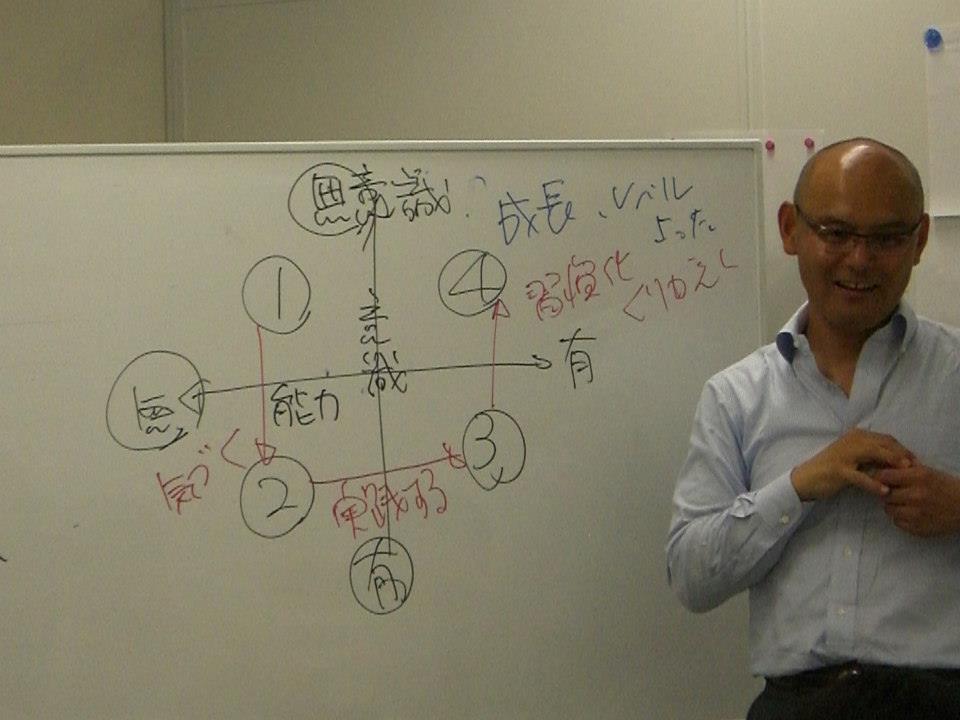 無意識
成長、レベル
よった
①
④
習慣化
くりかえし
意識
有
無
能力
気づく
②
③
実践する
有